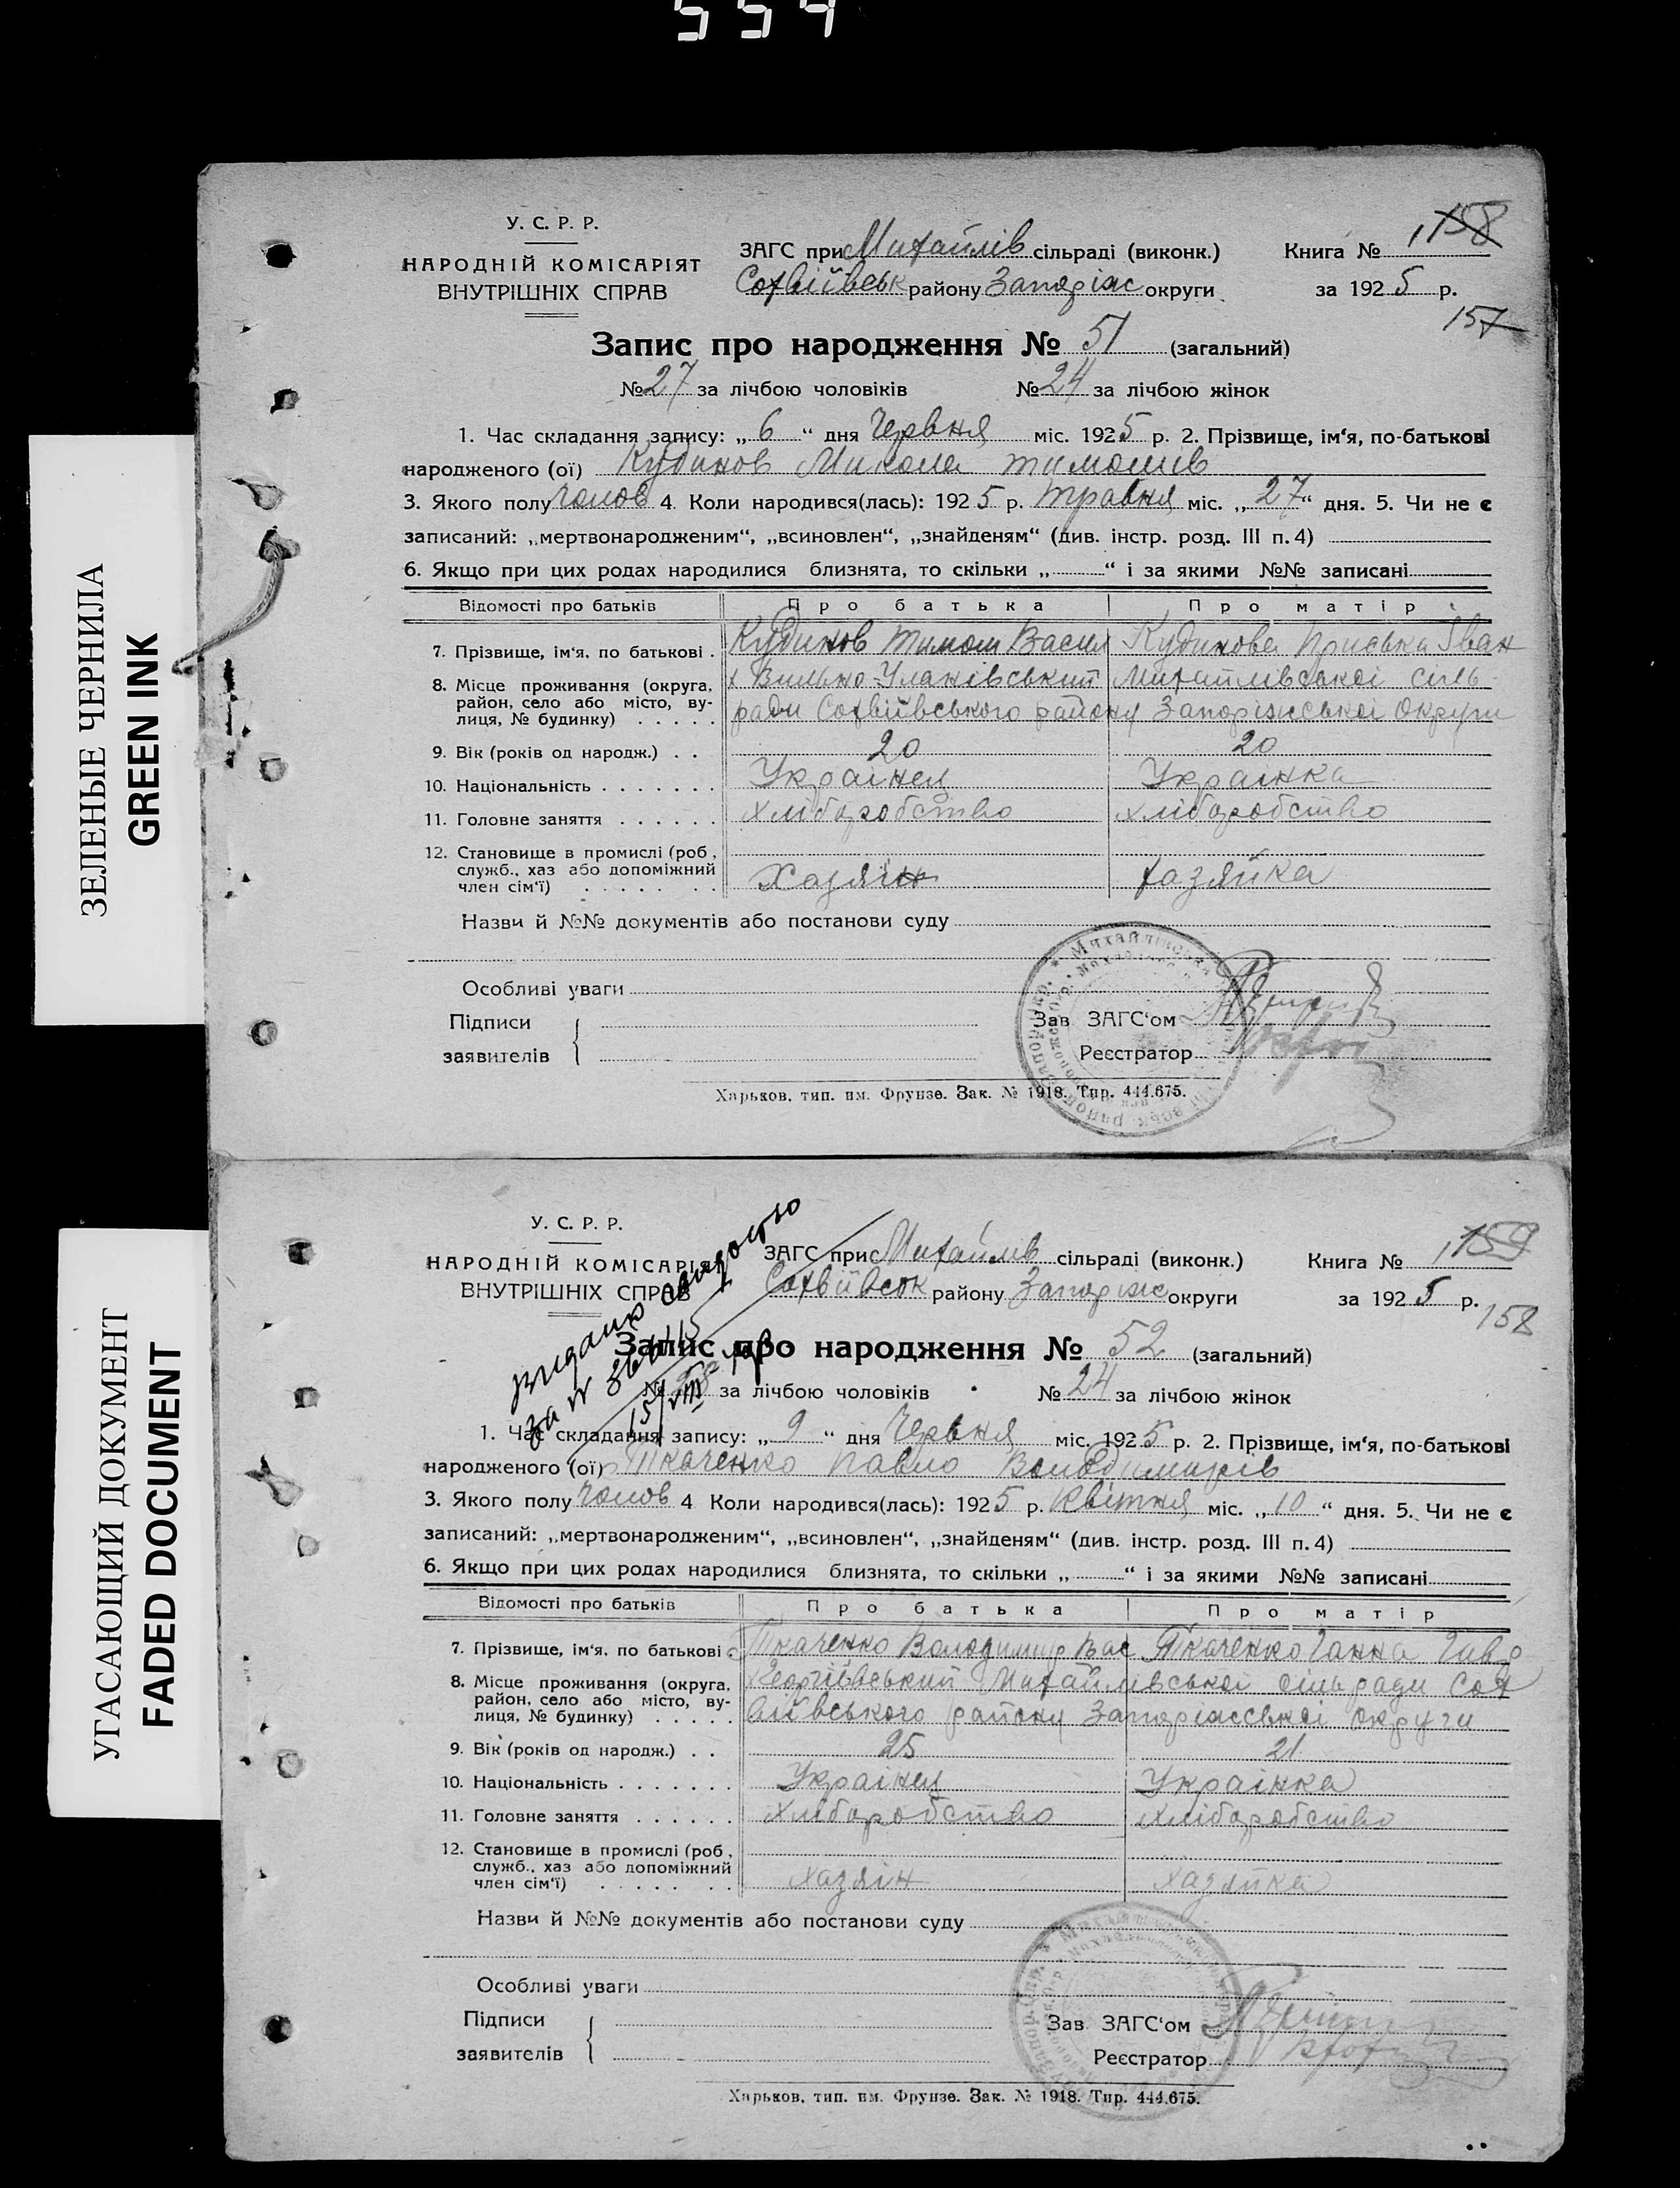 554
ЗЕЛЕНЫЕ ЧЕРНИЛА
GREEN INK
УГАСАЮЩИЙ ДОКУМЕНТ
FADED DOCUMENT
У. С. Р. Р.
НАРОДНІЙ КОМІСАРІЯТ
ВНУТРІШНІХ СПРАВ
ЗАГС при Михайлів сільраді (виконк.)
Софіївськ району Запоріж округи
Книга № 158
за 1925 р.
157
Запис про народження № 51 (загальний)
№ 27 за лічбою чоловіків № 24 за лічбою жінок
1. Час складання запису: „ 6 “ дня Червня міс. 1925 р. 2. Прізвище, ім‘я, по-батькові
народженого (ої) Кудинов Микола тимошів
3. Якого полу чолов 4. Коли народився(лась): 1925 р. травня міс. „ 27 “ дня. 5. Чи не є
записаний: „мертвонародженим“, „всиновлен“, „знайденям“ (див. інстр. розд. III п. 4)
6. Якщо при цих родах народилися близнята, то скільки „ “ і за якими №№ записані
Відомості про батьків Про батька Про матір
7. Прізвище, ім‘я. по батькові . Кудинов Тимош Васил Кудинова Приська Іван
8. Місце проживання (округа, х Вильно-Уланівський Михайлівської сіль-
район, село або місто, ву-
лиця, № будинку) . . . . . ради Софіївського району Запоріжської Округи
9. Вік (років од народж.) . . 20 20
10. Національність . . . . . . . Українец Українка
11. Головне заняття . . . . . . хліборобство хліборобство
12. Становище в промислі (роб.,
служб., хаз або допоміжний
член сім‘ї) . . . . . . . Хазяїн хазяйка
Назви й №№ документів або постанови суду
Особливі уваги
Підписи
заявителів
Зав ЗАГС‘ом
Реєстратор
Харьков, тип. им. Фрунзе. Зак. № 1918. Тир. 444.675.
У. С. Р. Р.
НАРОДНІЙ КОМІСАРІЯТ
ВНУТРІШНІХ СПРАВ
ЗАГС при Михайлів сільраді (виконк.)
Софіївськ району Запоріж округи
Книга № 159
за 1925 р.
158
Запис про народження № 52 (загальний)
№ 28 за лічбою чоловіків № 24 за лічбою жінок
1. Час складання запису: „ 9 “ дня Червня міс. 1925 р. 2. Прізвище, ім‘я, по-батькові
народженого (ої) Ткаченко Павло Володимирів
3. Якого полу чолов 4 Коли народився(лась): 1925 р. Квітня міс. „ 10 “ дня. 5. Чи не є
записаний: „мертвонародженим“, „всиновлен“, „знайденям“ (див. інстр. розд. III п. 4)
6. Якщо при цих родах народилися близнята, то скільки „ “ і за якими №№ записані
Відомості про батьків Про батька Про матір
7. Прізвище, ім‘я. по батькові . Ткаченко Володимир Вас Ткаченко Ганна Гавр
8. Місце проживання (округа, х Георгіївський Михайлівської сільради Соф
район, село або місто, ву-
лиця, № будинку) . . . . . іївського району Запоріжської округи
9. Вік (років од народж.) . . 25 21
10. Національність . . . . . . . Українец Українка
11. Головне заняття . . . . . . Хліборобство хліборобство
12. Становище в промислі (роб.,
служб., хаз або допоміжний
член сім‘ї) . . . . . . . хазяїн хазяйка
Назви й №№ документів або постанови суду
Особливі уваги
Підписи
заявителів
Зав ЗАГС‘ом
Реєстратор
Харьков, тип. им. Фрунзе. Зак. № 1918. Тир. 444.675.